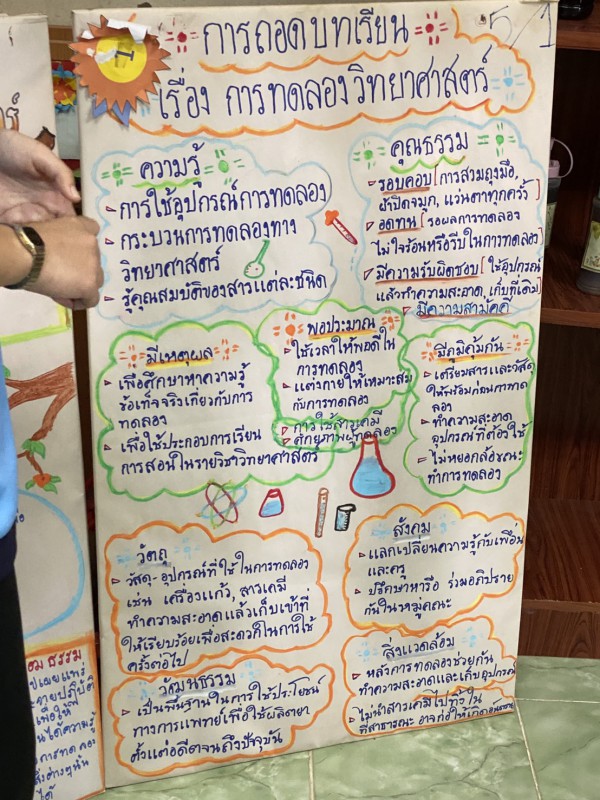 5/1
การถอดบทเรียน
เรื่อง การทดลองวิทยาศาสตร์
ความรู้
- การใช้อุปกรณ์การทดลอง
- กระบวนการทดลองทาง
วิทยาศาสตร์
- รู้คุณสมบัติของสารแต่ละชนิด
คุณธรรม
- รอบคอบ [การสวมถุงมือ,
ผ้าปิดจมูก, แว่นตาทุกครั้ง]
- อดทน [รอผลการทดลอง
ไม่ใจร้อนหรือรีบในการทดลอง]
- มีความรับผิดชอบ [ใช้อุปกรณ์
แล้วทำความสะอาด, เก็บที่เดิม]
- มีความสามัคคี
มีเหตุผล
- เพื่อศึกษาหาความรู้
ข้อเท็จจริงเกี่ยวกับการ
ทดลอง
- เพื่อใช้ประกอบการเรียน
การสอนในรายวิชาวิทยาศาสตร์
พอประมาณ
- ใช้เวลาให้พอดีใน
การทดลอง
- แต่งกายให้เหมาะสม
กับการทดลอง
- การใช้สารเคมี
- ศักยภาพผู้ทดลอง
มีภูมิคุ้มกัน
- เตรียมสารและวัสดุ
ให้พร้อมก่อนการทด
ลอง
- ทำความสะอาด
อุปกรณ์ที่ต้องใช้
- ไม่หยอกล้อขณะ
ทำการทดลอง
วัตถุ
- วัสดุ-อุปกรณ์ที่ใช้ในการทดลอง
เช่น เครื่องแก้ว, สารเคมี
ทำความสะอาดแล้วเก็บเข้าที่
ให้เรียบร้อยเพื่อสะดวกในการใช้
ครั้งต่อไป
สังคม
- แลกเปลี่ยนความรู้กับเพื่อน
และครู
- ปรึกษาหารือ ร่วมอภิปราย
กันในหมู่คณะ
วัฒนธรรม
- เป็นพื้นฐานในการใช้ประโยชน์
ทางการแพทย์เพื่อใช้ผลิตยา
ตั้งแต่อดีตจนถึงปัจจุบัน
สิ่งแวดล้อม
- หลังการทดลองช่วยกัน
ทำความสะอาดและเก็บอุปกรณ์
- ไม่นำสารเคมีไปทิ้งใน
ที่สาธารณะ อาจก่อให้เกิด